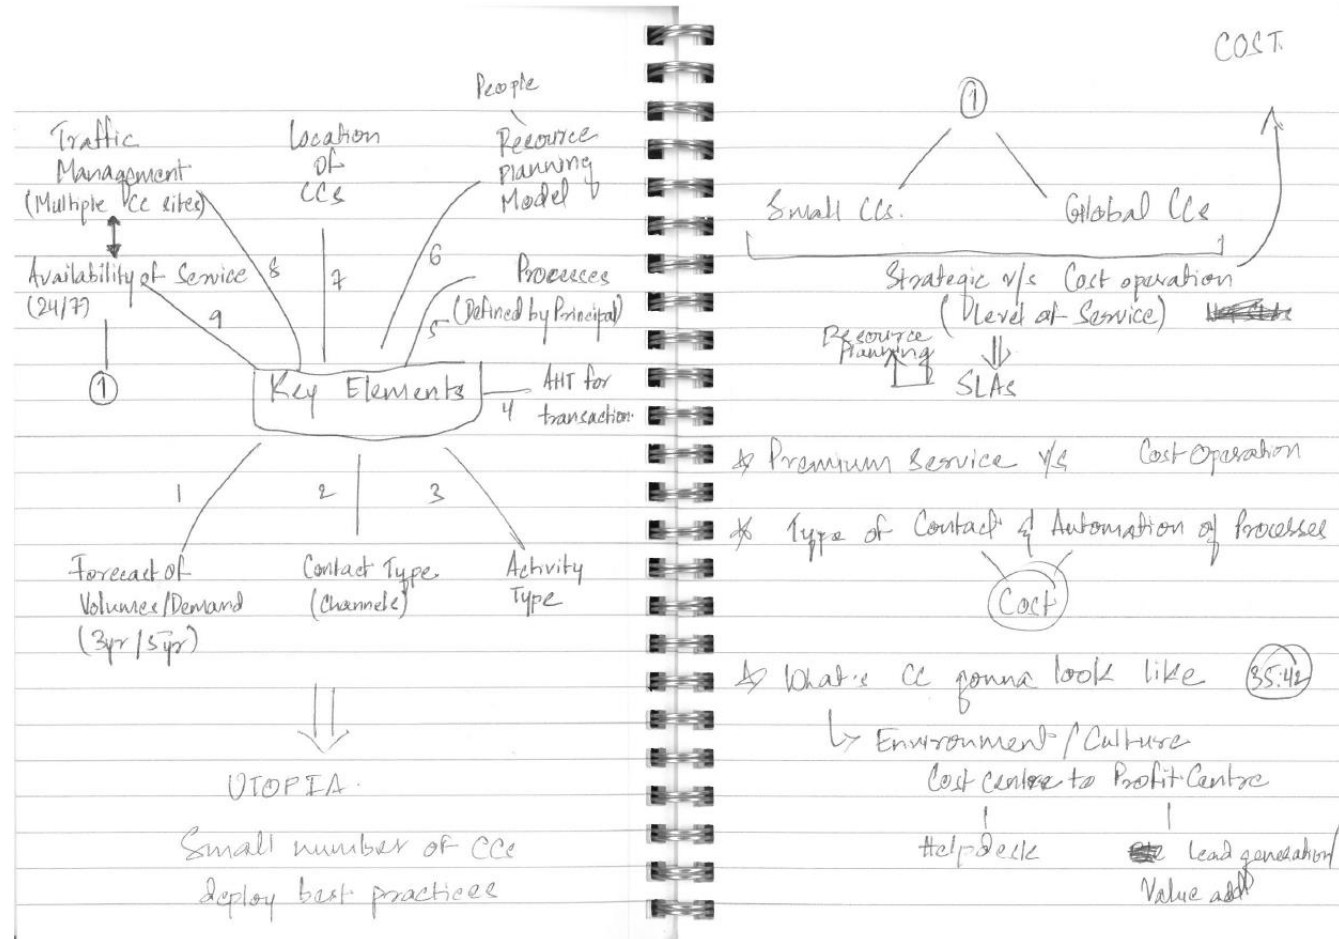 People
Traffic
Management
(Multiple CC sites)
Location
of
CCs
Resource
Planning
Model
8
7
6
Availability of Service
(24/7)
9
Processes
(Defined by Principal)
5
1
Key Elements
4
AHT for
transaction.
1
2
3
Forecast of
Volumes/Demand
(3yr/5yr)
Contact Type
(Channels)
Activity
Type
UTOPIA.
Small number of CCs
deploy best practices
COST.
1
Small CCs.
Global CCs
Strategic v/s Cost operation
(Level of Service)
Resource
Planning
SLAs
Premium Service v/s Cost Operation
Type of Contact & Automation of Processes
Cost
What's CC gonna look like 35:42
Environment/Culture
Cost centre to Profit Centre
Helpdesk
Lead generation/
Value add